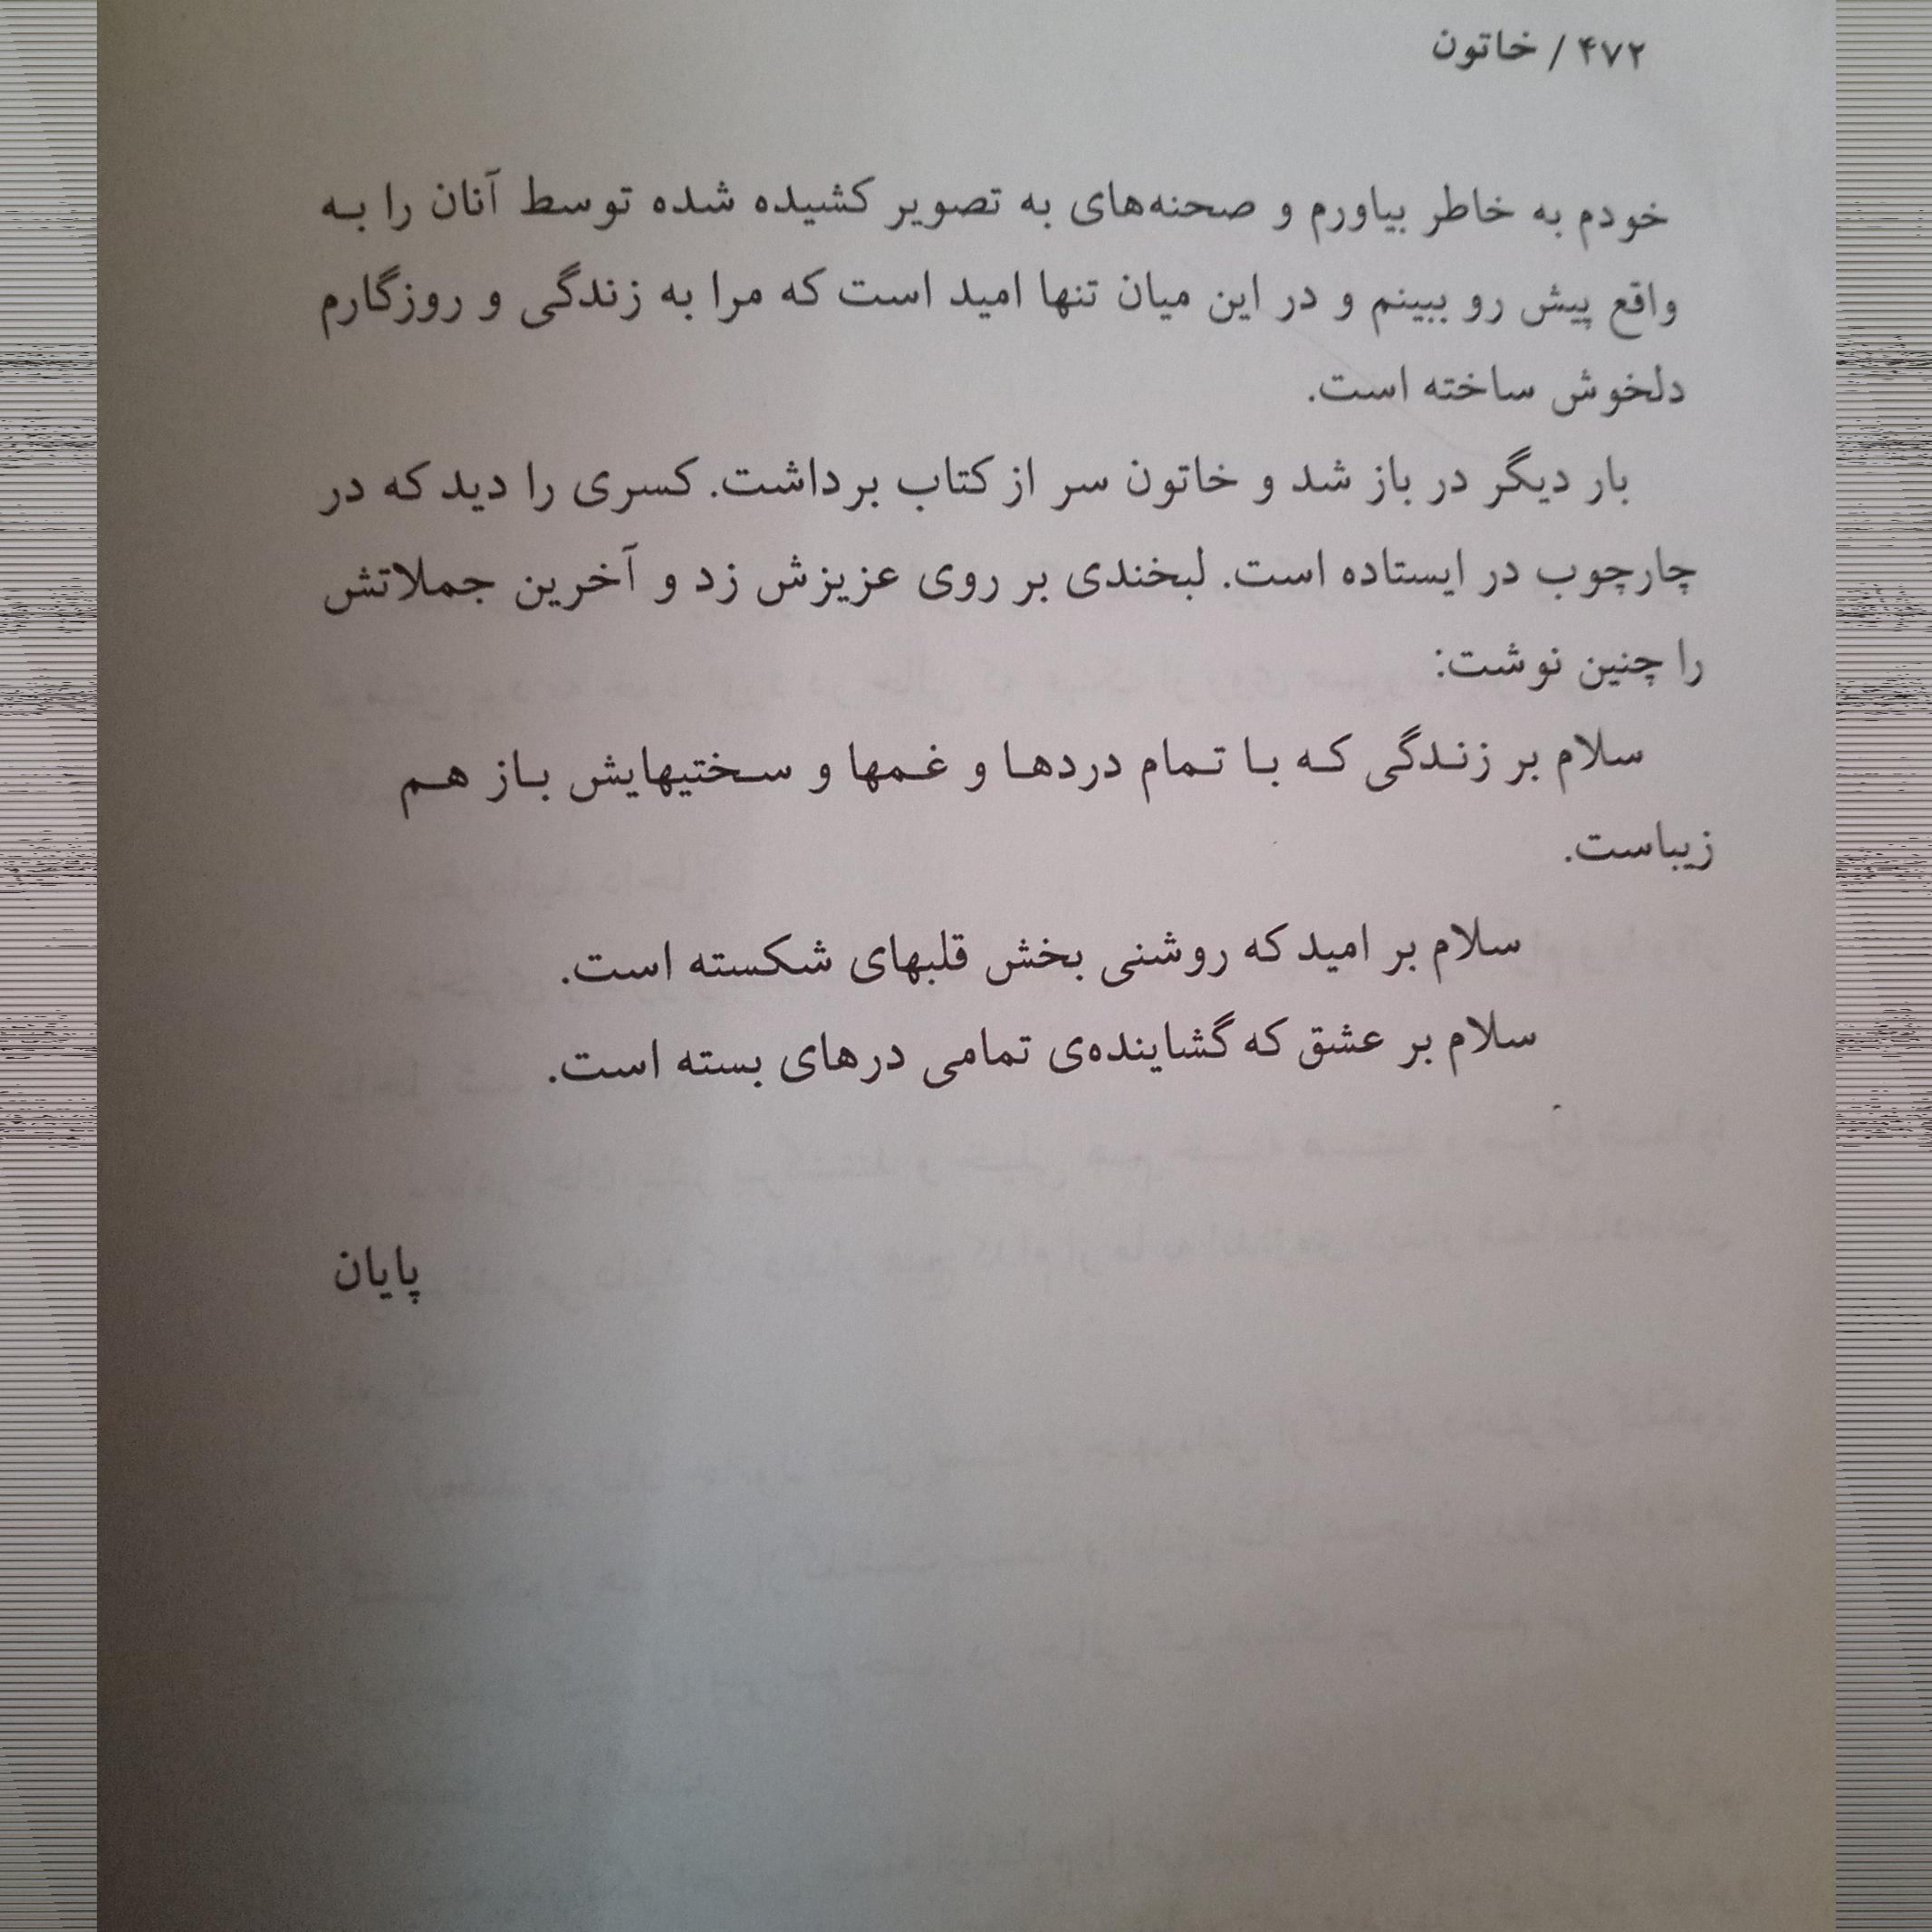 ۴۷۲ / خاتون
خودم به خاطر بیاورم و صحنه‌های به تصویر کشیده شده توسط آنان را به
واقع پیش رو ببینم و در این میان تنها امید است که مرا به زندگی و روزگارم
دلخوش ساخته است.
بار دیگر در باز شد و خاتون سر از کتاب برداشت. کسری را دید که در
چارچوب در ایستاده است. لبخندی بر روی عزیزش زد و آخرین جملاتش
را چنین نوشت:
سلام بر زندگی که با تمام دردها و غمها و سختیهایش باز هم
زیباست.
سلام بر امید که روشنی بخش قلبهای شکسته است.
سلام بر عشق که گشاینده‌ی تمامی درهای بسته است.
پایان